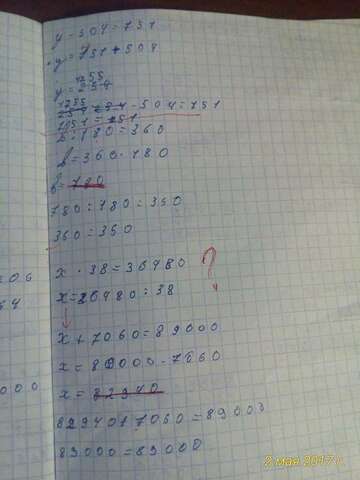 y - 504 = 751
y = 751 + 504
1255
y = 254
1255
254 - 504 = 751
751 = 751
b : 180 = 360
b = 360 · 180
b = 780
780 : 780 = 360
360 = 360
x · 38 = 36480 ?
x = 36480 : 38
x + 7060 = 89000
x = 89000 - 7660
x = 82940
829401 7060 = 89000
89000 = 89000
06
64
000
2 мая 2017 г.